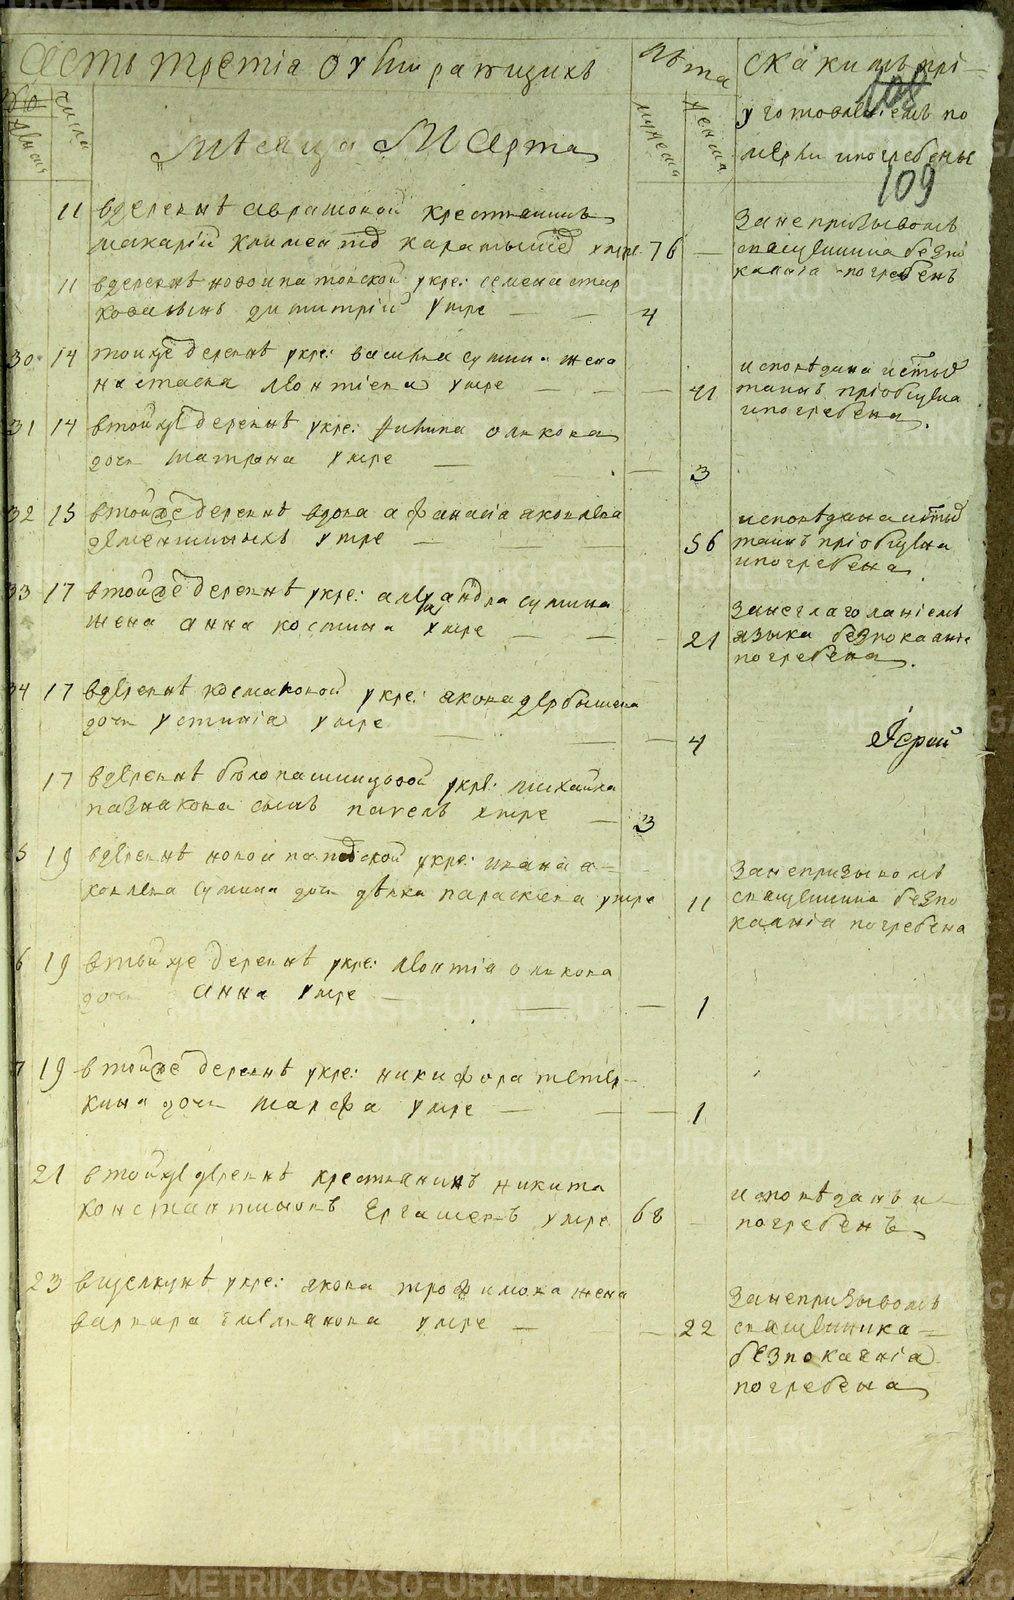 Часть третіа о умирающихъ
лѣта
скакимъ прі-
уготовлніемъ по
мерли ипогребены
108
109
числа
мужеска
женска
Мѣсяца Марта
11 вдеревнѣ аврамовой крестянинъ
макарій климентов карамышев умре 76 —
занепризывомъ
сващенника безпо
каания погребенъ
11 вдеревнѣ новоипатовской укре: семена стар
ковасынъ димитрій умре — — 4
30 14 тоиже деревнѣ укре: василиа сумина жена
настасиа леонтиева умре — — 41
исповѣдана истых
таинъ пріобщена
ипогребена.
31 14 втойже деревнѣ укре: филипа оликова
дочь матрона умре — — 3
32 15 втойже деревнѣ вдова афанасіа яковлева
умре — — 56
исповѣдана истых
таинъ пріобщена
ипогребена
33 17 втойже деревнѣ укре: алеѯандра сумина
жена анна костина умре — — 21
занеглаголаніемъ
языка безпокааніа
погребена.
34 17 вдеревнѣ космаковой укре: якова дербышева
дочь устиніа умре — — 4
Іерей
17 вдеревнѣ белопашинцовой укре: михайла
пазнакова сынъ павелъ умре — 3
5 19 вдеревнѣ новоипатовской укре: ивана я-
ковлева сумина дочь дѣвка параскева умре 11
занепризывомъ
сващенника безпо
кааніа погребена
6 19 втойже деревнѣ укре: леонтіа оликова
дочь анна умре — — 1
7 19 втойже деревнѣ укре: никифора тетер-
кина дочь марфа умре — — 1
21 втойже деревнѣ крестианинъ никита
константиновъ Ергашевъ умре 68 —
исповѣданъ и
погребенъ
23 вщелкунѣ укре: якова трофимова жена
варвара емелианова умре — — 22
занепризывомъ
сващенника
безпокааніа
погребена
METRIKI.GASO-URAL.RU